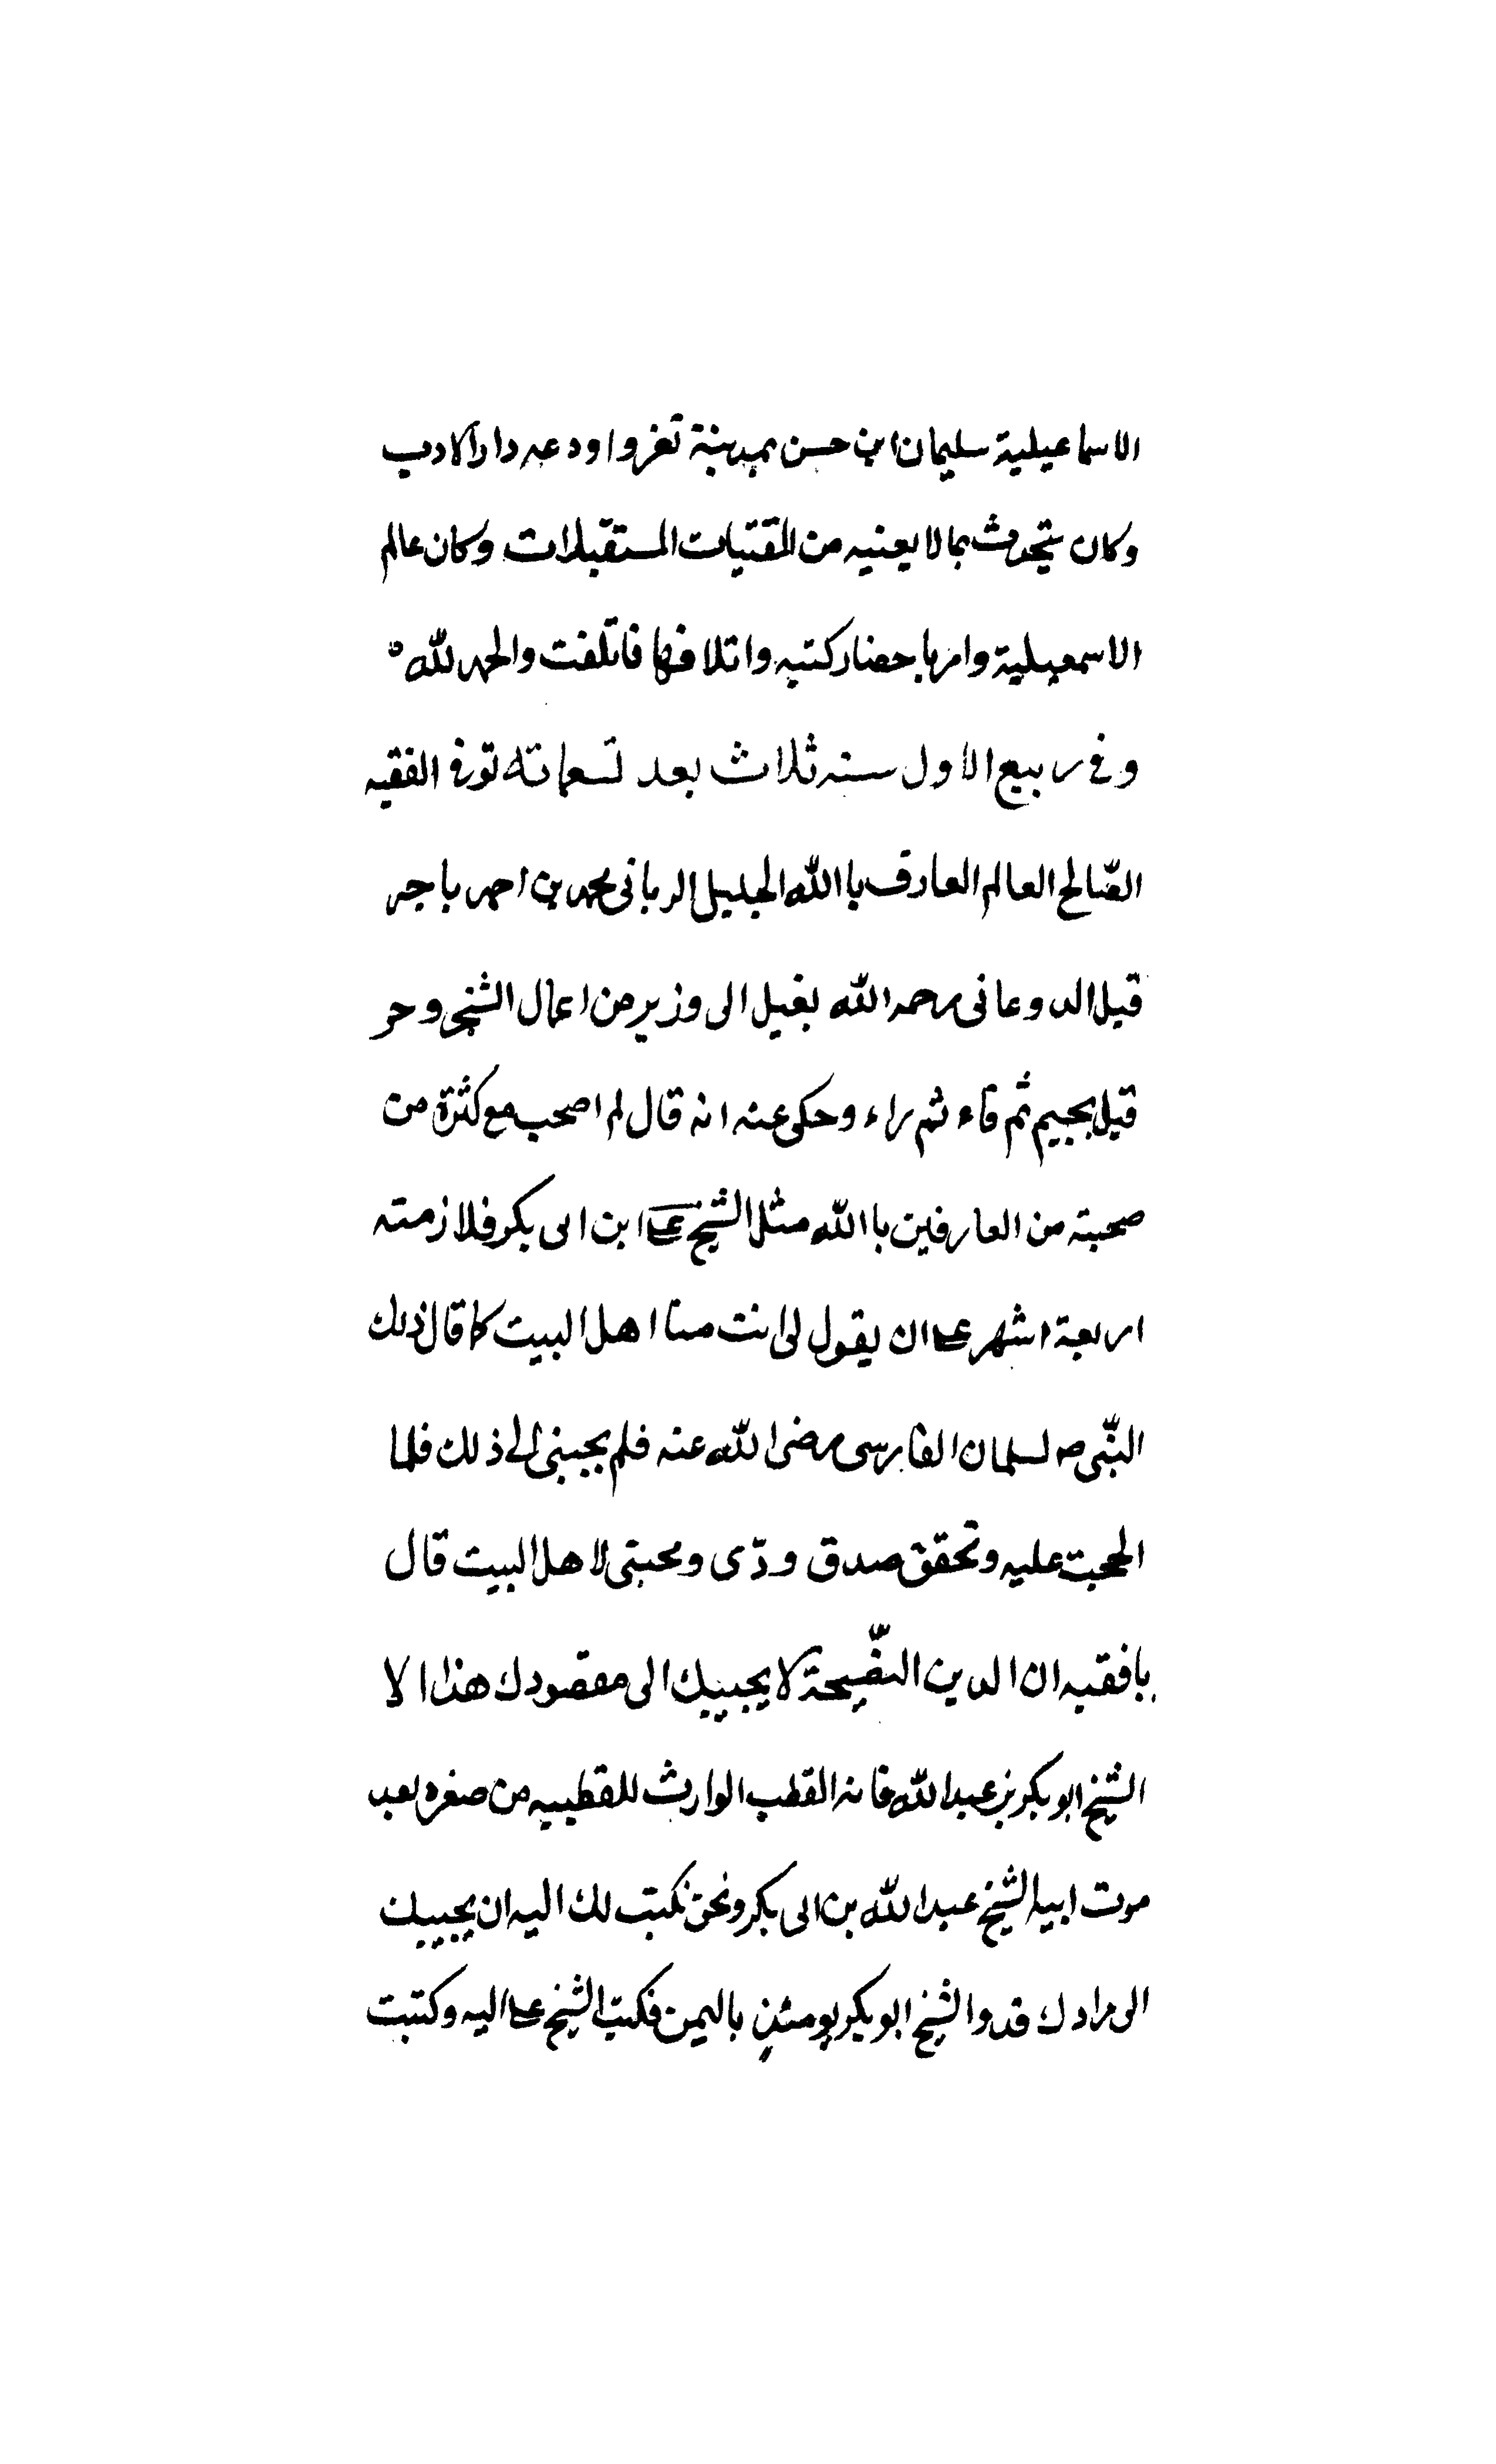 الاسماعيلية سليمان ابن حسن بمدينة تعز واودعه دار الادب
وكان يتحدث بما لا يعنيه من المقتيات المستقبلات وكان عالم
الاسمعيلية وامر باحضار كتبه واتلافها فاتلفت والحمد لله ه
وفي ربيع الاول سنه ثلاث بعد تسعمائه توفي الفقيه
الصّالح العالم العارف باالله الجليل الرباني محمد بن احمد باجر
قيل الدوعاني رحمه الله بغيل ابي وزير من اعمال الشحر وجر
قيل بجيم ثم قاء ثم راء وحكي عنه انه قال لم اصحب مع كثرة من
صحبته من العارفين باالله مثل الشيخ علي ابن ابى بكر فلازمته
اربعة اشهر على ان يقول لي انت منا اهل البيت كما قال ذلك
النّبي صه لسلمان الفارسى رضى الله عنه فلم يجبنى الى ذلك فلما
الححت عليه وتحقق صدق ودّى ومحبتى لاهل البيت قال
يافقيه ان الدين النصّيحة لا يجيبك الى مقصودك هذا الا
الشيخ ابو بكر بن عبدالله فانه القطب الوارث للقطبيه من صغره بعد
موت ابيه الشيخ عبدالله بن ابي بكر ونحن نكتب لك اليه ان يجيبك
الى مرادك قد والشيخ ابو بكر يومئذ باليمن فكتب الشيخ على اليه وكتبت